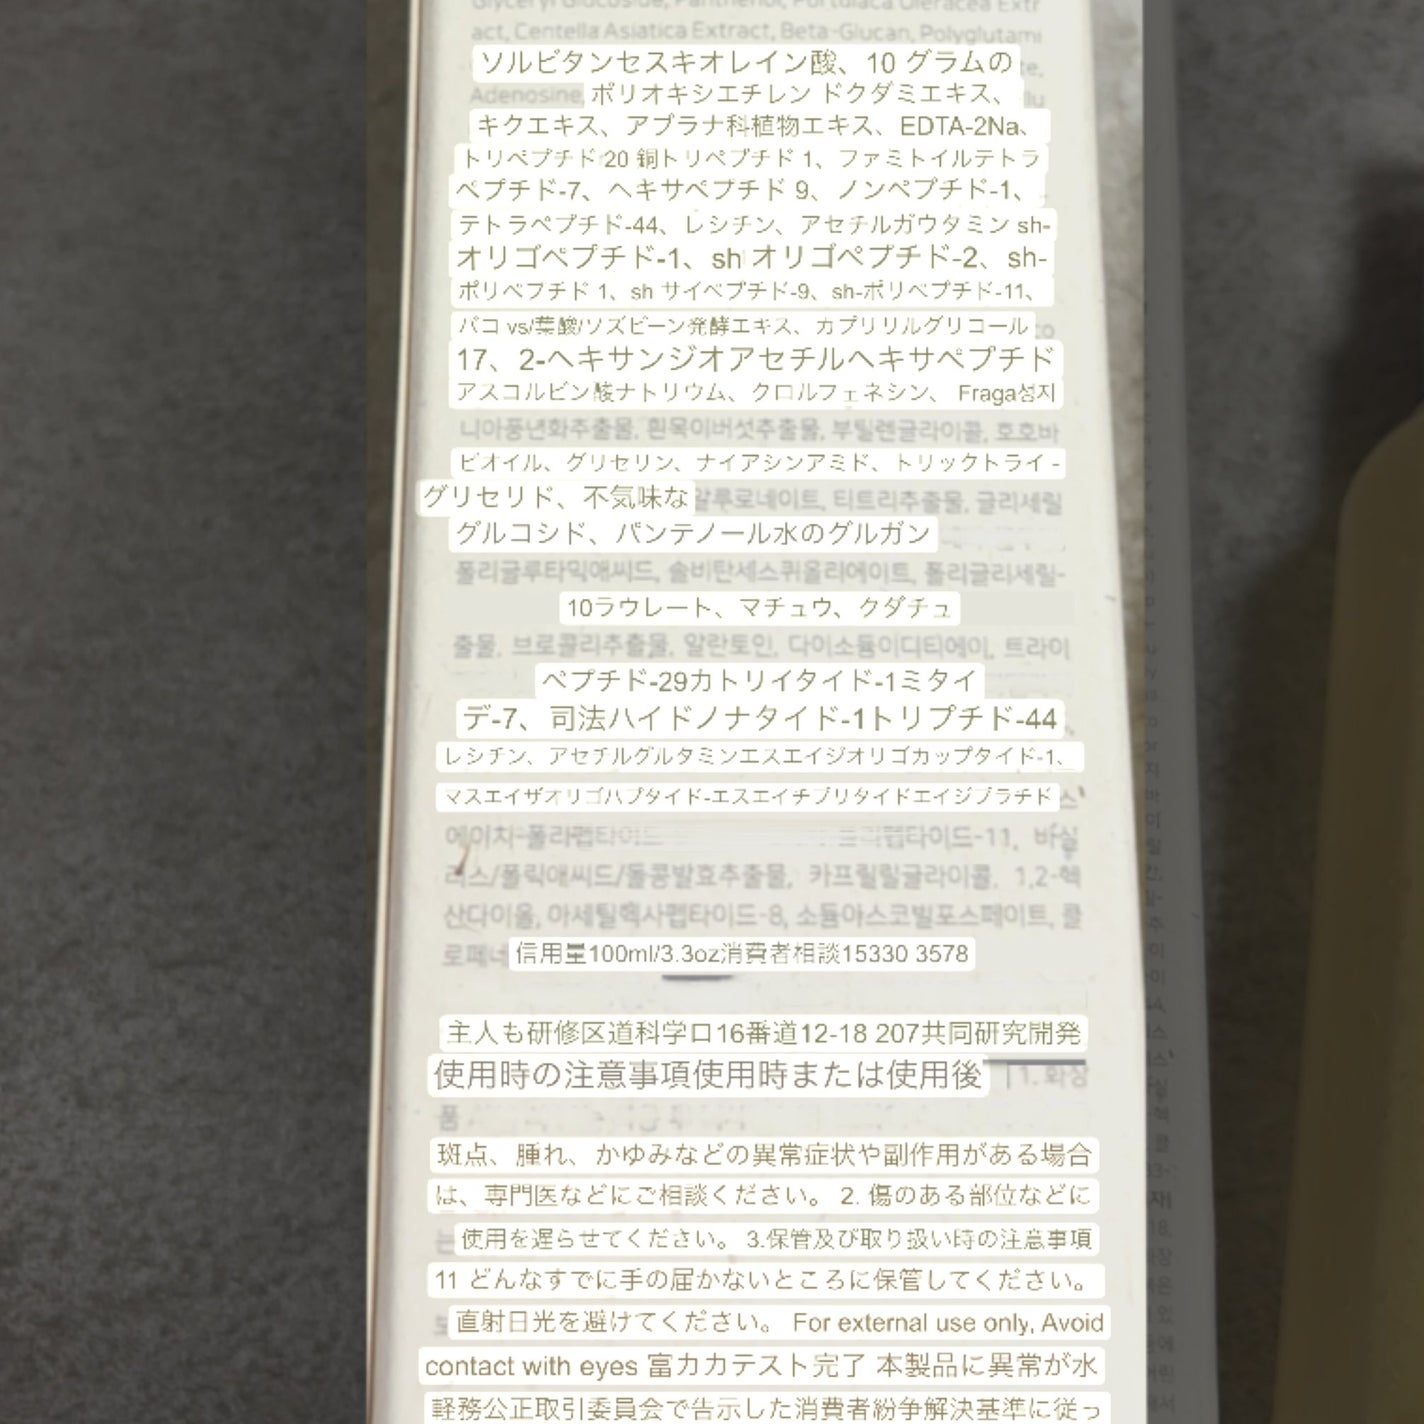 Glyceryl Glucoside, Panthenol, Portulaca Oleracea Extr
act, Centella Asiatica Extract, Beta-Glucan, Polyglutami
ソルビタンセスキオレイン酸、10 グラムの
Adenosine, ポリオキシエチレン ドクダミエキス、
キクエキス、アブラナ科植物エキス、EDTA-2Na、
トリペプチド 20 銅トリペプチド 1、ファミトイルテトラ
ペプチド-7、ヘキサペプチド 9、ノンペプチド-1、
テトラペプチド-44、レシチン、アセチルガウタミン sh-
オリゴペプチド-1、sh オリゴペプチド-2、sh-
ポリペプチド 1、sh サイペプチド-9、sh-ポリペプチド-11、
バコ vs/葉酸/ソズビーン発酵エキス、カプリリルグリコール
17、2-ヘキサンジオアセチルヘキサペプチド
アスコルビン酸ナトリウム、クロルフェネシン、 Fraga성지
니아풍년화추출물, 흰목이버섯추출물, 부틸렌글라이콜, 호호바
ビオイル、グリセリン、ナイアシンアミド、トリックトライ -
グリセリド、不気味な 알루로네이트, 티트리추출물, 글리세릴
グルコシド、パンテノール水のグルガン
폴리글루타믹애씨드, 솔비탄세스퀴올리에이트, 폴리글리세릴-
10ラウレート、マチュウ、クダチュ
출물, 브로콜리추출물, 알란토인, 다이소듐이디티에이, 트라이
ペプチド-29カトリイタイド-1ミタイ
デ-7、司法ハイドノナタイド-1トリプチド-44
レシチン、アセチルグルタミンエスエイジオリゴカップタイド-1、
マスエイザオリゴハプタイド-エスエイチブリタイドエイジプラチド 스'
에이치-폴라펩타이드 펩타이드-11, 바실
러스/폴릭애씨드/돌콩발효추출물, 카프릴릴글라이콜, 1,2-헥
산다이올, 아세틸헥사펩타이드-8, 소듐아스코빌포스페이트, 클
로페네 信用量100ml/3.3oz消費者相談15330 3578
主人も研修区道科学口16番道12-18 207共同研究開発
使用時の注意事項使用時または使用後 | 1. 화장
품
斑点、腫れ、かゆみなどの異常症状や副作用がある場合
は、専門医などにご相談ください。 2. 傷のある部位などに
使用を遅らせてください。 3.保管及び取り扱い時の注意事項
11 どんなすでに手の届かないところに保管してください。
直射日光を避けてください。 For external use only, Avoid
contact with eyes 富カカテスト完了 本製品に異常が水
軽務公正取引委員会で告示した消費者紛争解決基準に従っ